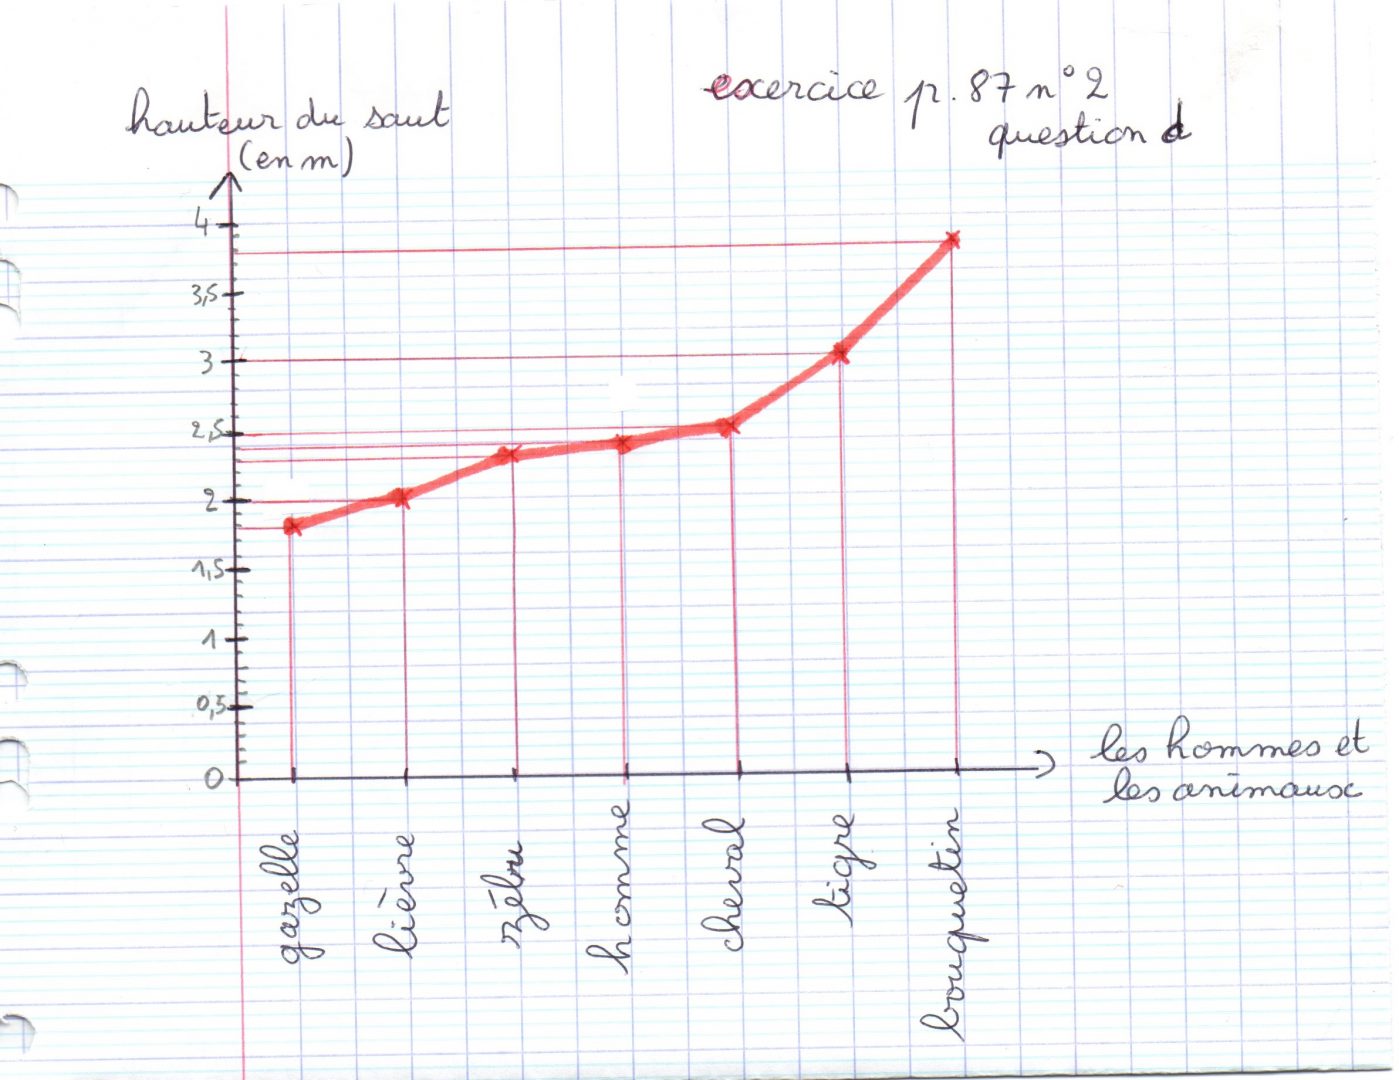 exercice p. 87 n° 2
question d
hauteur du saut
(en m)
4
3,5
3
2,5
2
1,5
1
0,5
0
les hommes et
les animaux
gazelle
lièvre
zébu
homme
cheval
tigre
bouquetin